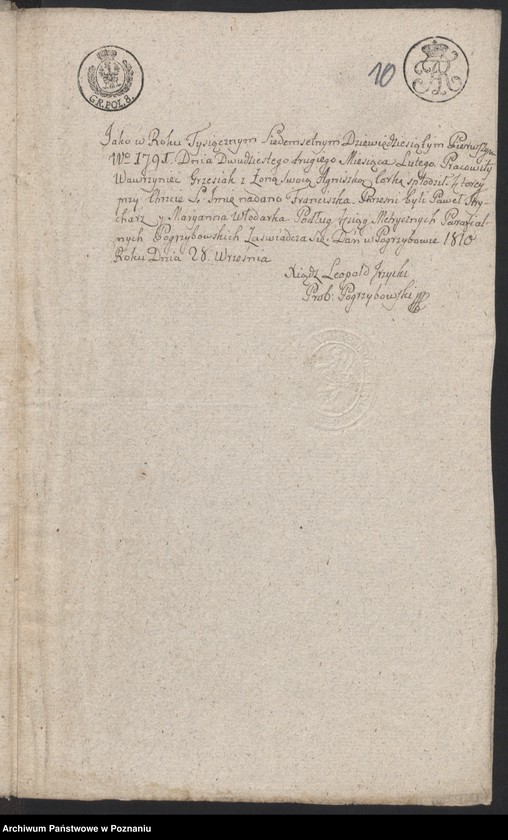 GR. POL. 8.
10
Jako w Roku Tysiącznym Siedemsetnym Dziewiędziesiątym Pierwszym
Nro 1791. Dnia Dwudziestego drugiego Miesiąca Lutego Pracowity
Wawrzyniec Grzesiak z Żoną swoią Agniszką Corkę spłodził, ktorey
przy Chrzcie S. Imie nadano Franciszka. Krzesni byli Paweł
y Maryanna Włodarka Podług Xiąg Metrycznych Parafial-
nych Pogrzybowskich Zaswiadcza się. Dan w Pogrzybowie 1810
Roku Dnia 28. Wrzesnia
Xiądz Leopold
Prob: Pogrzybowski
Archiwum Państwowe w Poznaniu